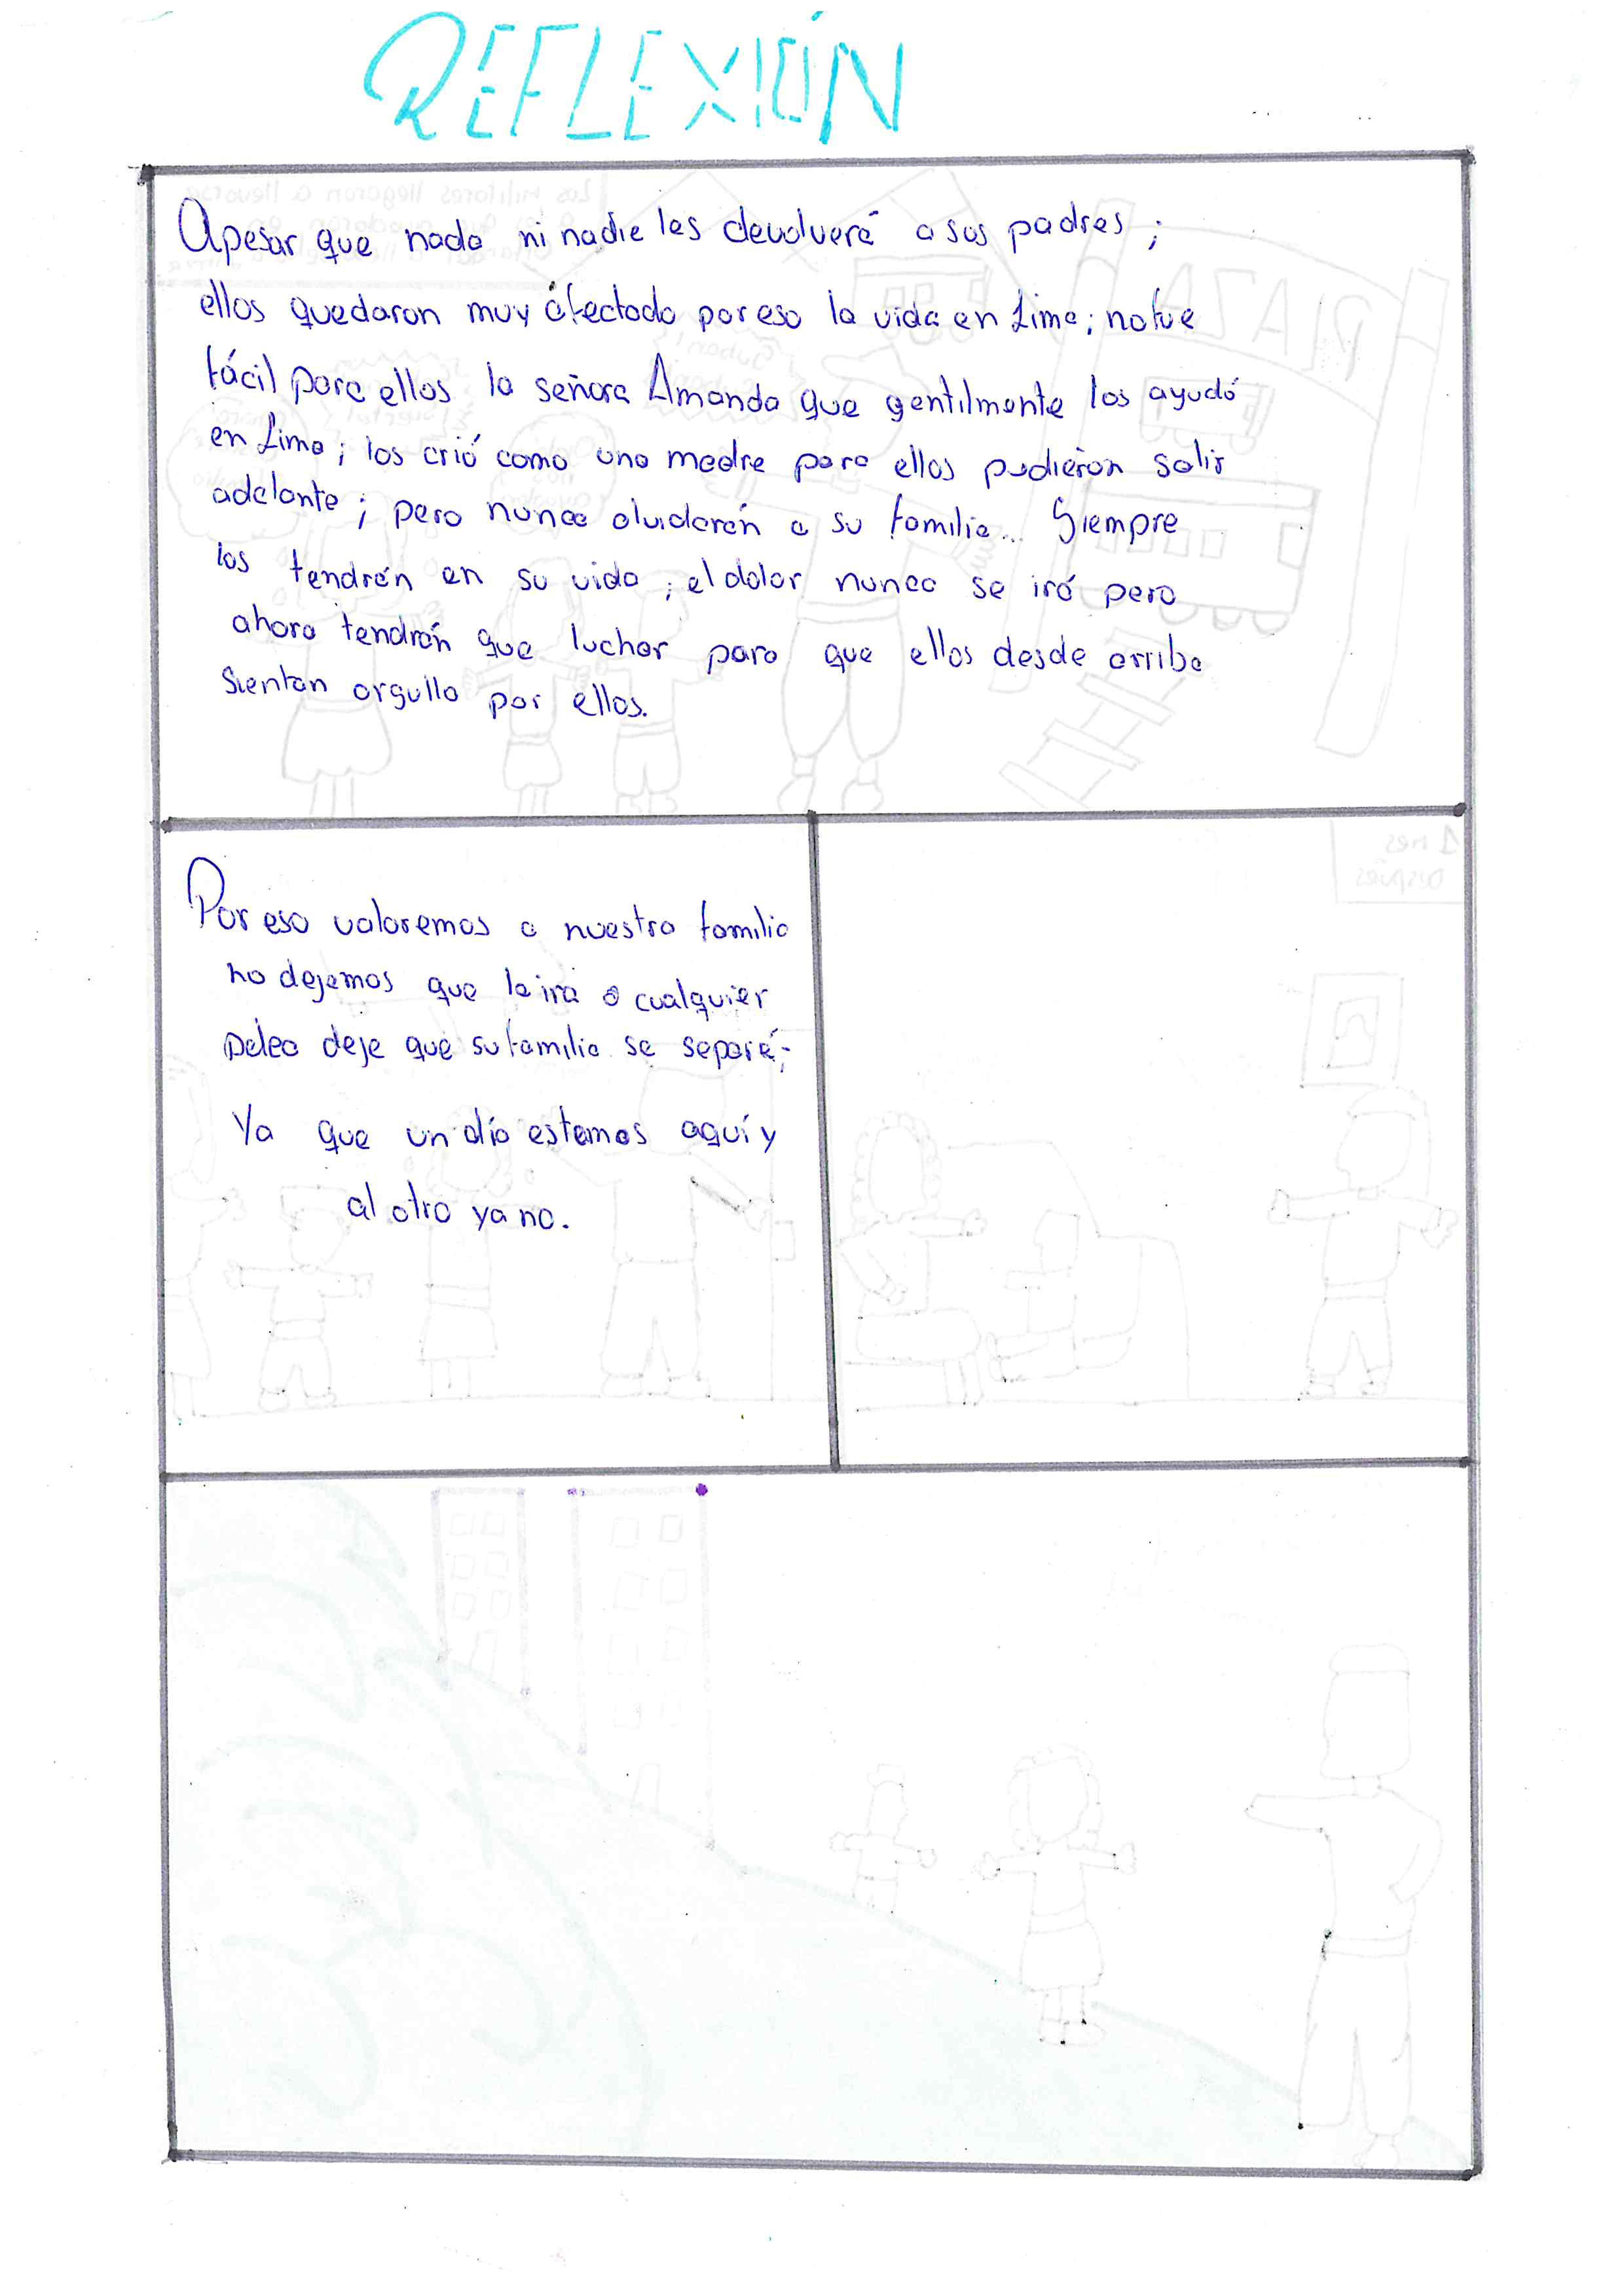 REFLEXIÓN
Apesar que nada ni nadie les devolverá a sus padres ;
ellos quedaron muy afectado por eso la vida en Lima ; no fue
fácil para ellos la señora Amanda que gentilmente los ayudó
en Lima ; los crió como una madre para ellos pudieron salir
adelante ; pero nunca olvidarán a su familia... Siempre
los tendrán en su vida ; el dolor nunca se irá pero
ahora tendrán que luchar para que ellos desde arriba
sientan orgullo por ellos.
Por eso valoremos a nuestra familia
no dejemos que la ira o cualquier
pelea deje que su familia se separé ;
Ya que un día estamos aquí y
al otro ya no.
PLAZA
1 mes
después